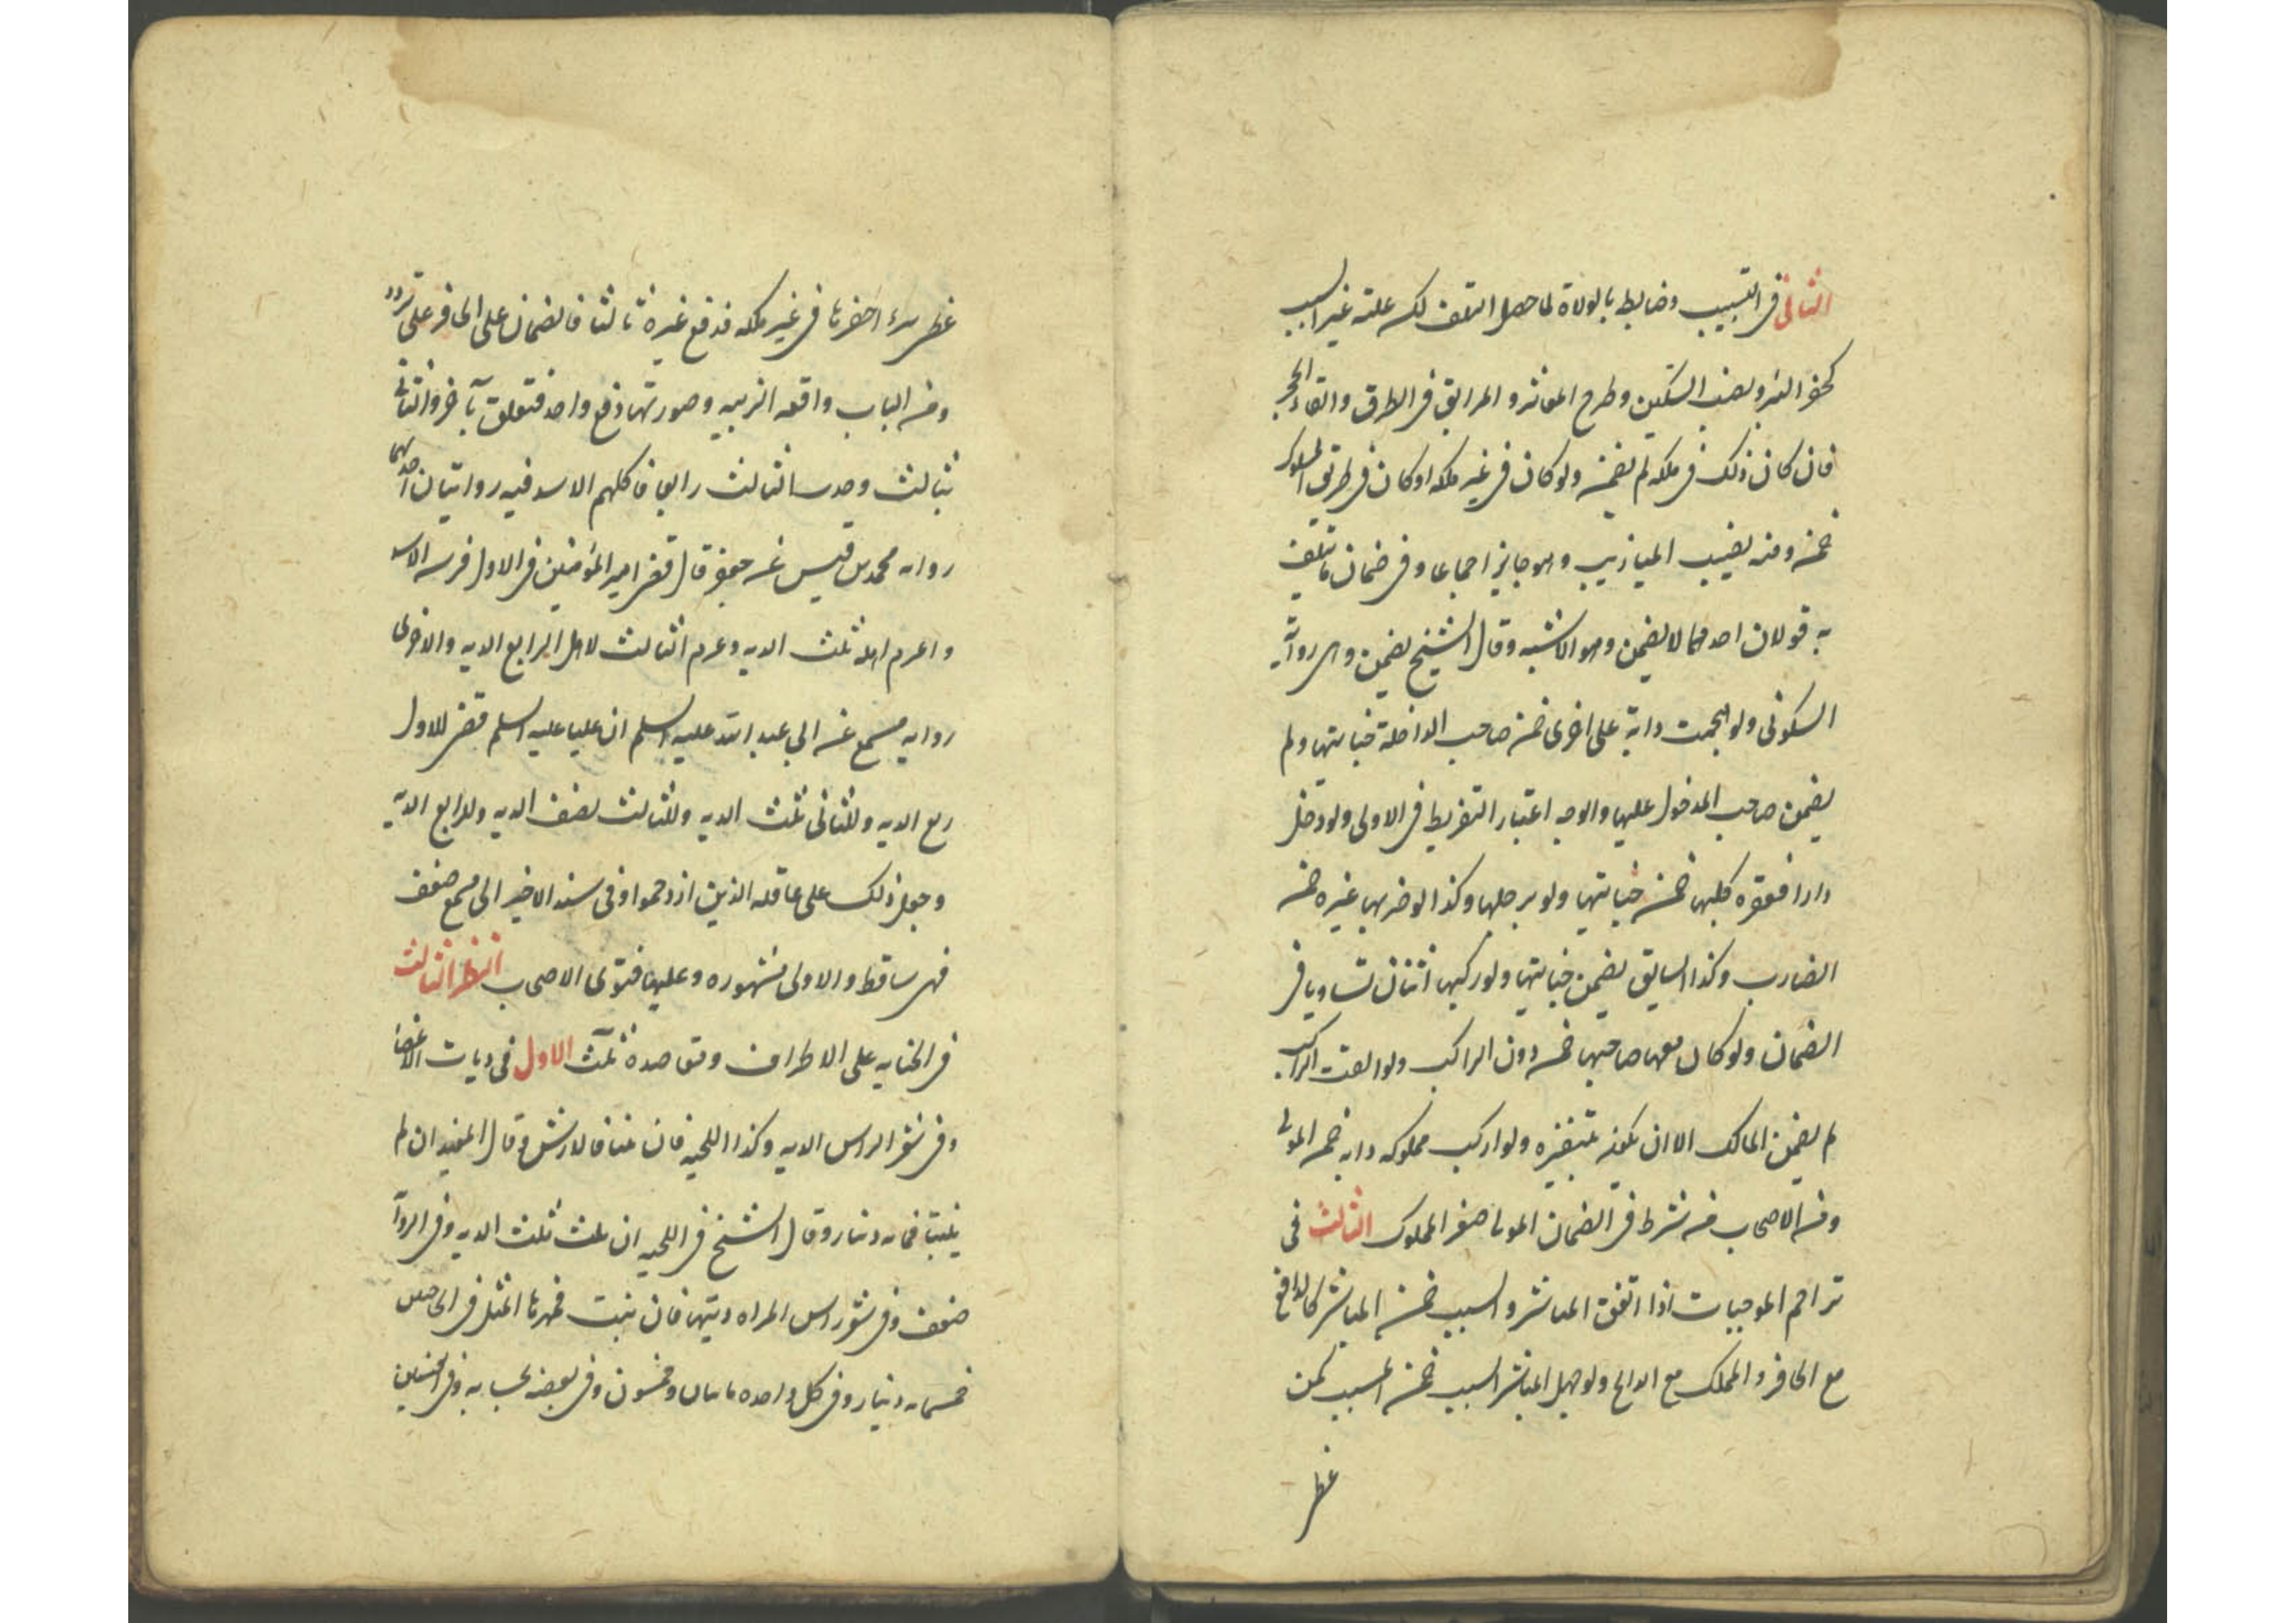 الثانى فى التسبيب وضابطه بالولاة لما حصل التلف لكن علته غير السبب
كحفر البئر ونصب السكين وطرح المعاثر والمزالق فى الطرق والقاء الحجر
فان كان ذلك فى ملكه لم يضمن ولو كان فى غير ملكه او كان فى طريق المسلوك
ضمن ومنه نصب الميازيب وهو جايز اجماعا وفى ضمان ما يتلف
به قولان احدهما لا يضمن وهو الاشبه وقال الشيخ يضمن وهى رواية
السكونى ولو هجمت دابة على اخرى ضمن صاحب الداخلة جنايتها ولم
يضمن صاحب المدخول عليها والوجه اعتبار التفريط فى الاولى ولو دخل
دارا فعقره كلبها ضمن جنايتها ولو برجلها وكذا لو ضربها غيره ضمن
الضارب وكذا السايق يضمن جنايتها ولو ركبها اثنان تساويا فى
الضمان ولو كان معها صاحبها ضمن دون الراكب ولو القت الراكب
لم يضمن المالك الا ان يكون بتنفيره ولو اركب مملوكه دابه ضمن المولى
ومن الاصحاب من شرط فى الضمان المولى صغر المملوك الثالث فى
تزاحم الموجبات اذا اتفق المباشر والسبب ضمن المباشر كالدافع
مع الحافر والممسك مع الذابح ولو جهل المباشر السبب ضمن المسبب كمن
غطى
غطى بئرا حفرها فى غير ملكه فدفع غيره ثالثا فالضمان على الحافر على تردد
ومن الباب واقعه الزبيه وصورتها وقع واحد فتعلق بآخر والثانى
بثالث وجذب الثالث رابعا فاكلهم الاسد فيه روايتان احدهما
روايه محمد بن قيس عن جعفر قال قضى امير المؤمنين فى الاول فريسه الاسد
واغرم اهله ثلث الديه وغرم الثالث لاهل الرابع الديه والاخرى
روايه مسمع عن ابى عبد الله عليه السلم ان عليا عليه السلم قضى للاول
ربع الديه وللثانى ثلث الديه وللثالث نصف الديه وللرابع الدية
وجعل ذلك على عاقله الذين ازدحموا وفى سند الاخير الى مسمع ضعف
فهى ساقطه والاولى مشهوره وعليها فتوى الاصحاب النظر الثالث
فى الجنايه على الاطراف ومقاصده ثلث الاول فى ديات الاعضا
وفى شعر الراس الديه وكذا اللحيه فان نبتا فالارش وقال المفيد ان لم
ينبتا فمايه دينار وقال الشيخ فى اللحيه ان نبتت ثلث الديه وفى الرواية
ضعف وفى شعر راس المراه ديتها فان نبت فمهرها المثل فى الحاجبين
خمسمايه دينار وفى كل واحده مايتان وخمسون وفى بعضه بحسابه وفى العينين